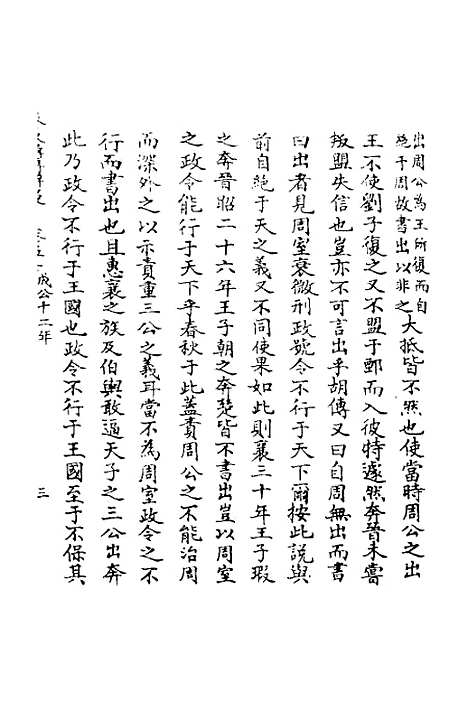 出周公為王所復而自
絶于周故書出以非之大抵皆不然也使當時周公之出
王不使劉子復之又不盟于鄄而入彼特遽然奔晉未嘗
叛盟失信也豈亦不可言出乎胡傳又曰自周無出而書
曰出者見周室衰微刑政號令不行于天下爾按此説與
前自絶于天之義又不同使果如此則襄三十年王子瑕
之奔晉昭二十六年王子朝之奔楚皆不書出豈以周室
之政令能行于天下乎春秋于此蓋責周公之不能治周
而深外之以示責重三公之義耳當不為周室政令之不
行而書出也且惠襄之族及伯輿敢逼天子之三公出奔
此乃政令不行于王國也政令不行于王國至于不保其
卷五 成公十二年
三